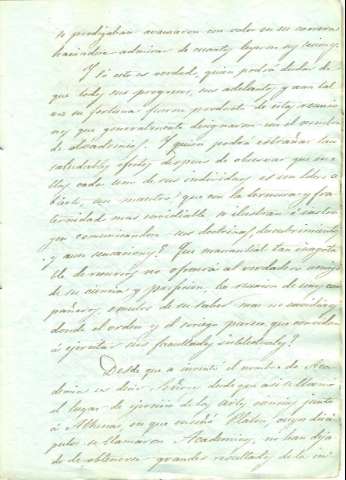 se prodigaban avanzaron con valor en su carrera
haciendose admirar de cuantos leyeron sus
Y si esto es verdad, quien podrá dudar de
que todos sus progresos, sus adelantos y aun tal
vez su fortuna fueron producto de estas reunio
nes que generalmente designaron con el nombre
de Academias? Y quién podrá estrañar tan
saludables efectos despues de observar que en e
llas cada uno de sus individuos es un libro a
bierto, un maestro, que con la ternura y fra
ternidad mas envidiable se ilustran ó castra
gen comunicandose sus doctrinas, descubrimientos
y aun? Que manantial tan inagota
ble de recursos no ofrecerá al verdadero amigo
de su ciencia y profesion, la reunion de unos com
pañeros, émulos de su saber mas no envidiosos
donde el orden y el sosiego parece que convidan
á ejercitar sus facultades intelectuales?
Desde que se inventó el nombre de Aca
demia es decir Señores desde que asi se llamó
el lugar de ejercicio de las artes, ciencias junto
á Athenas, en que enseñó Platon, cuyos discí
pulos se llamaron Academicos, no han deja
do de obtenerse grandes resultados de la in